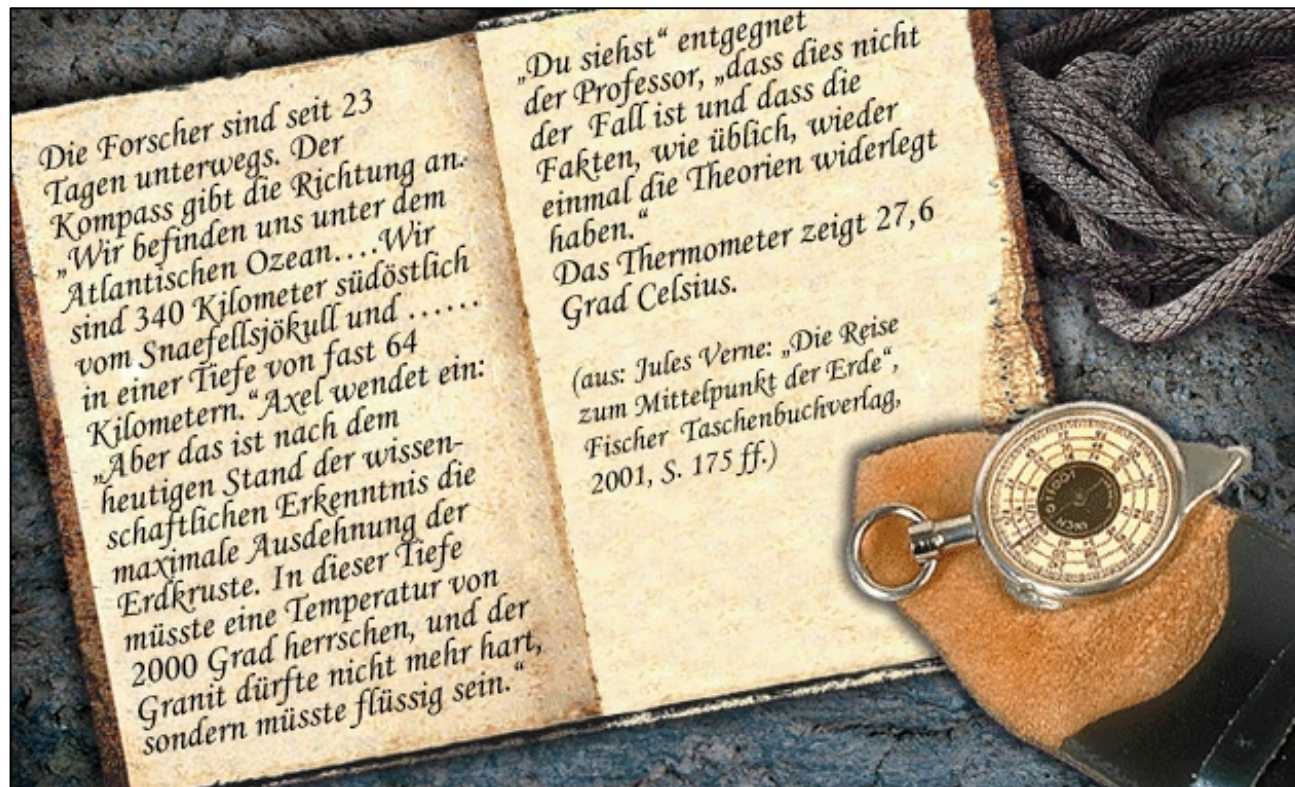 Die Forscher sind seit 23
Tagen unterwegs. Der
Kompass gibt die Richtung an.
„Wir befinden uns unter dem
Atlantischen Ozean....Wir
sind 340 Kilometer südöstlich
vom Snaefellsjökull und ......
in einer Tiefe von fast 64
Kilometern.“Axel wendet ein:
„Aber das ist nach dem
heutigen Stand der wissen-
schaftlichen Erkenntnis die
maximale Ausdehnung der
Erdkruste. In dieser Tiefe
müsste eine Temperatur von
2000 Grad herrschen, und der
Granit dürfte nicht mehr hart,
sondern müsste flüssig sein.“
„Du siehst“ entgegnet
der Professor, „dass dies nicht
der Fall ist und dass die
Fakten, wie üblich, wieder
einmal die Theorien widerlegt
haben.“
Das Thermometer zeigt 27,6
Grad Celsius.
(aus: Jules Verne: „Die Reise
zum Mittelpunkt der Erde“,
Fischer Taschenbuchverlag,
2001, S. 175 ff.)